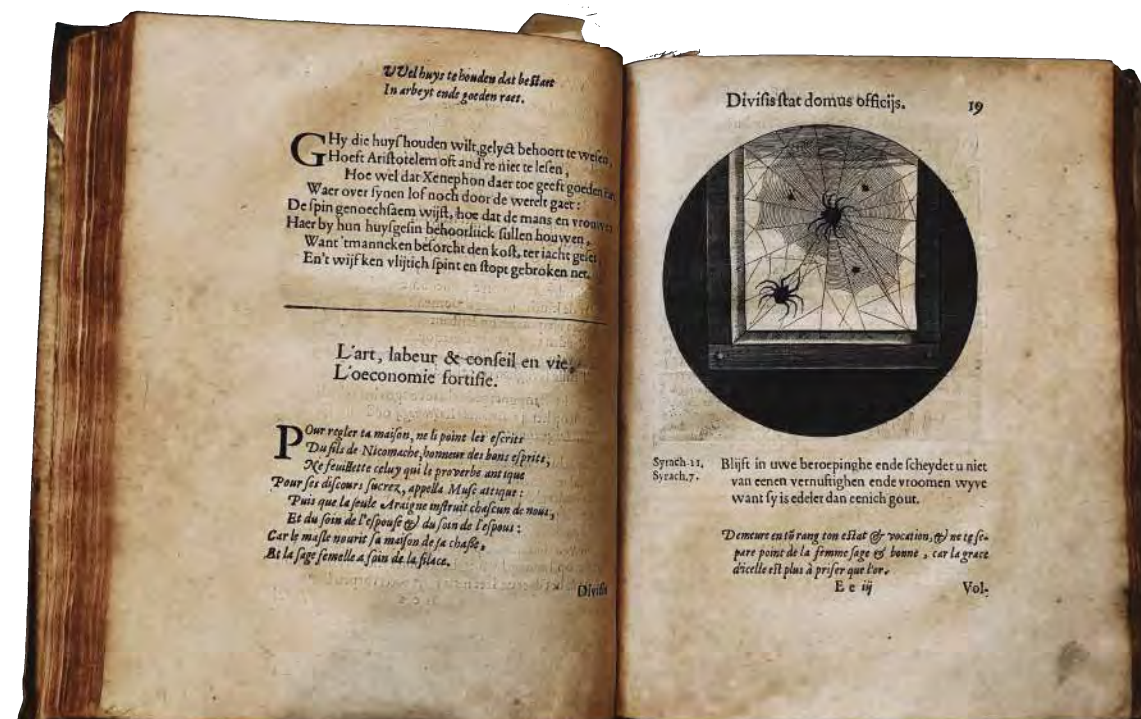 VVel huys te houden dat bestaet
In arbeyt ende goeden raet.
GHy die huyſhouden wilt, gelyck behoort te weſen,
Hoeft Ariſtotelem oft and're niet te leſen,
Hoe wel dat Xenephon daer toe geeft goeden
Waer over ſynen lof noch door de werelt gaet:
De ſpin genoechſaem wijſt, hoe dat de mans en vrouwen
Haer by hun huyſgeſin behoorlijck ſullen houwen,
Want 'tmanneken beſorcht den koſt, ter iacht geſet
En't wijfken vlijtich ſpint en ſtopt gebroken net.
L'art, labeur & conſeil en vie,
L'oeconomie fortifie.
POur regler ta maiſon, ne li point les eſcrits
Du fils de Nicomache, honneur des bons eſprits,
Ne feuillette celuy qui le proverbe antique
Pour ſes diſcours ſucrez, appella Muſe attique:
Puis que la ſeule Araigne inſtruit chaſcun de nous,
Et du ſoin de l'eſpouſe & du ſoin de l'eſpous:
Car le maſle nourit ſa maiſon de ſa chaſſe,
Et la ſage femelle a ſoin de la filace.
Diviſis
Diviſis ſtat domus officijs. 19
Syrach.11. Blijft in uwe beroepinghe ende ſcheydet u niet
Syrach.7. van eenen vernuftighen ende vroomen wyve
want ſy is edeler dan eenich gout.
Demeure en tō rang ton eſtat & vocation, & ne te ſe-
pare point de la femme ſage & bonne, car la grace
d'icelle eſt plus à priſer que l'or.
E e iij Vol-